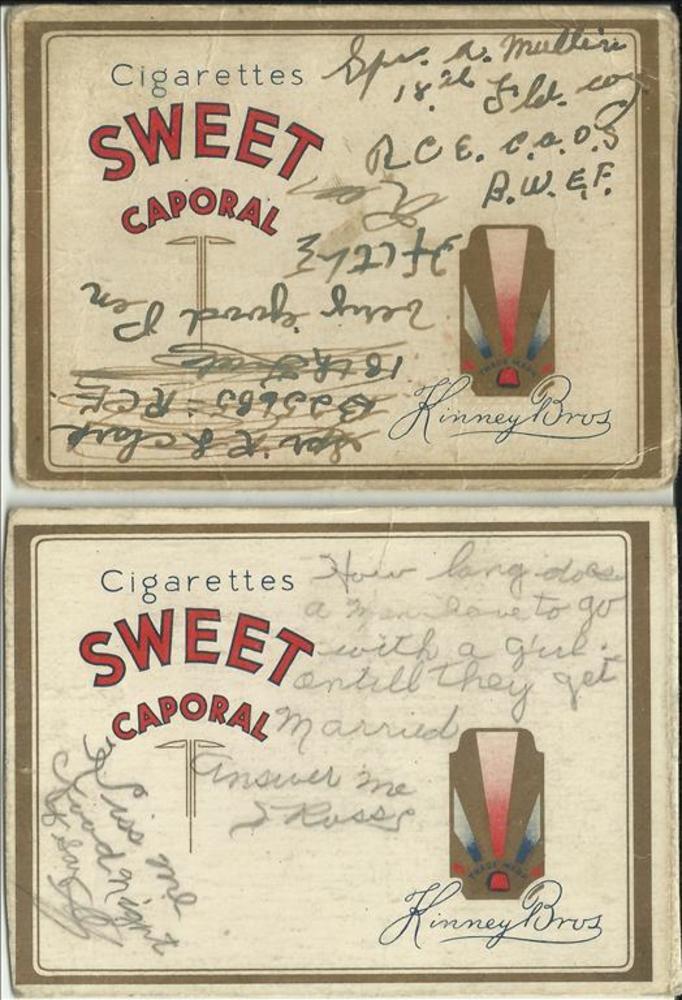 Cigarettes
SWEET
CAPORAL
Spr. A. Mullin
18th Fld. coy
R C E. C.A.O.S
B.W.E.F.
very good Pen
18th
B25685 RCE
Spr R L Clark
TRADE MARK
Kinney Bros
Cigarettes
SWEET
CAPORAL
How long does
a man have to go
with a girl
entill they get
Married
Answer me
Ross
Kiss me
Good night
TRADE MARK
Kinney Bros